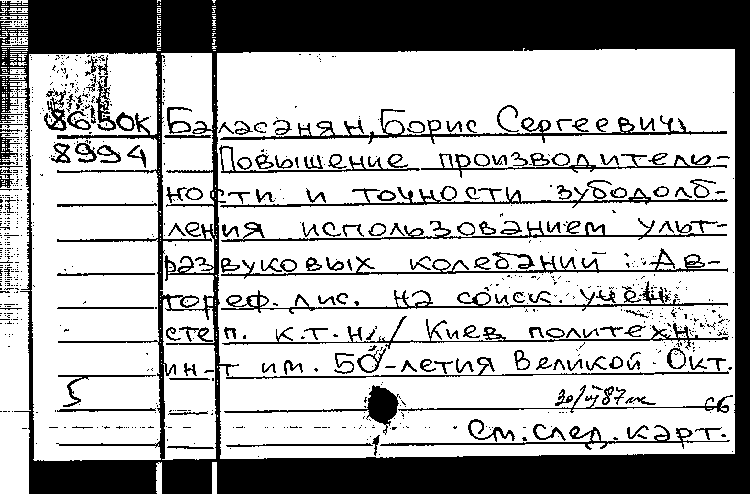 8650К Баласанян, Борис Сергеевич.
8994 Повышение производитель-
ности и точности зубодолб-
ления использованием ульт-
развуковых колебаний : Ав-
тореф. дис. на соиск. учен.
степ. к.т.н. / Киев. политехн.
ин-т им. 50-летия Великой Окт.
5
сб
См. след. карт.